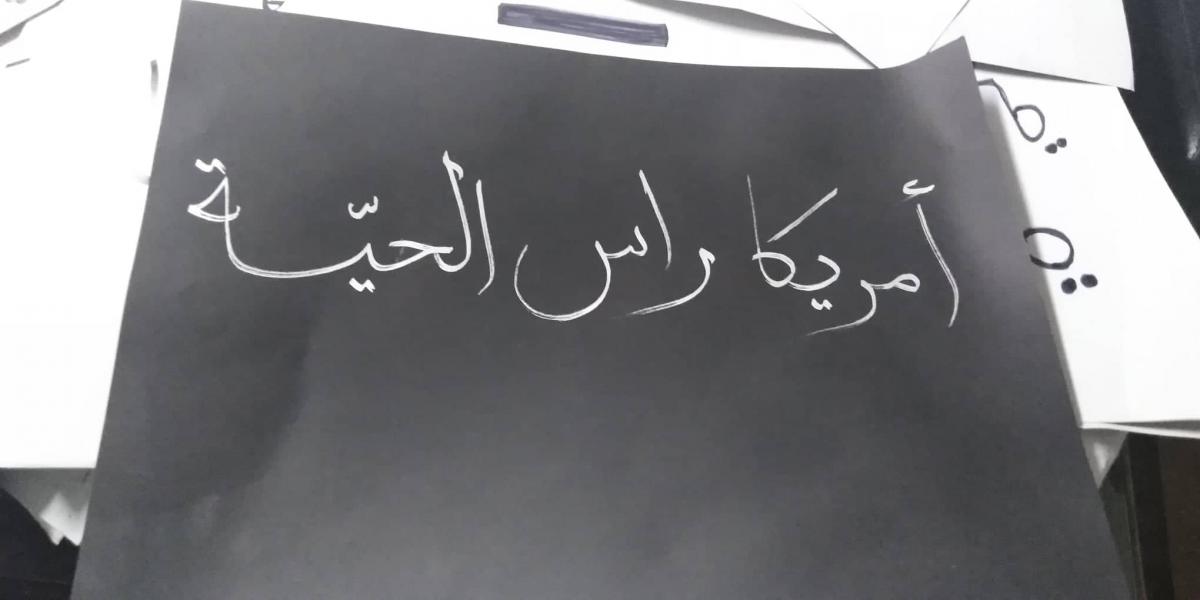 أمريكا راس الحيّة